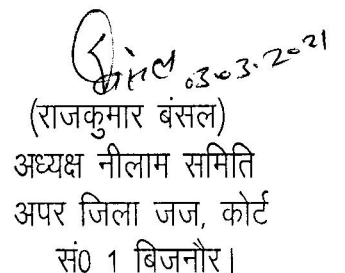 बंसल 03.03.2021
(राजकुमार बंसल)
अध्यक्ष नीलाम समिति
अपर जिला जज, कोर्ट
सं0 1 बिजनौर।